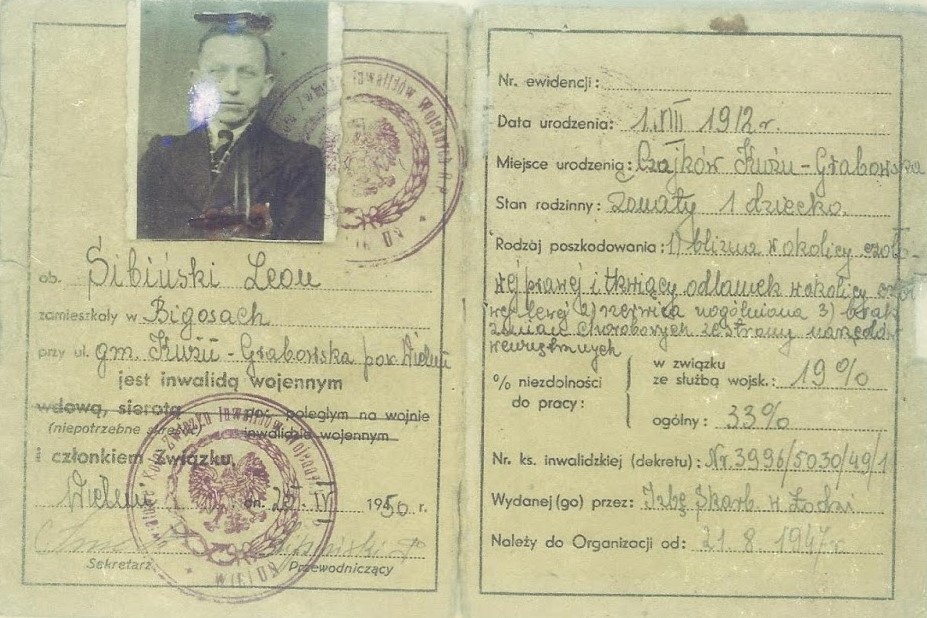 ob. Sibiński Leon
zamieszkały w Bigosach
przy ul. gm. Kuźn-Grabowska pow. Wieluń
jest inwalidą wojennym
wdową, sierotą po poległym na wojnie
(niepotrzebne skreślić) inwalidzie wojennym
i członkiem Związku.
Wieluń dn. 20. IV 1950 r.
Sekretarz Przewodniczący
WIELUŃ
Nr. ewidencji:
Data urodzenia: 1. VIII 1912 r.
Miejsce urodzenia: Czajków Kuźn-Grabowska
Stan rodzinny: Żonaty 1 dziecko.
Rodzaj poszkodowania: 1) blizna w okolicy czoło-
wej prawej i tkwiący odłamek w okolicy
lewej 2) nerwica uogólniona 3) brak
zmian chorobowych ze strony narządów
wewnętrznych
% niezdolności do pracy:
w związku ze służbą wojsk.: 19 %
ogólny: 33%
Nr. ks. inwalidzkiej (dekretu): Nr. 3996/5030/49/1
Wydanej (go) przez: Izbę Skarb. w Łodzi
Należy do Organizacji od: 21. 8. 1947 r.